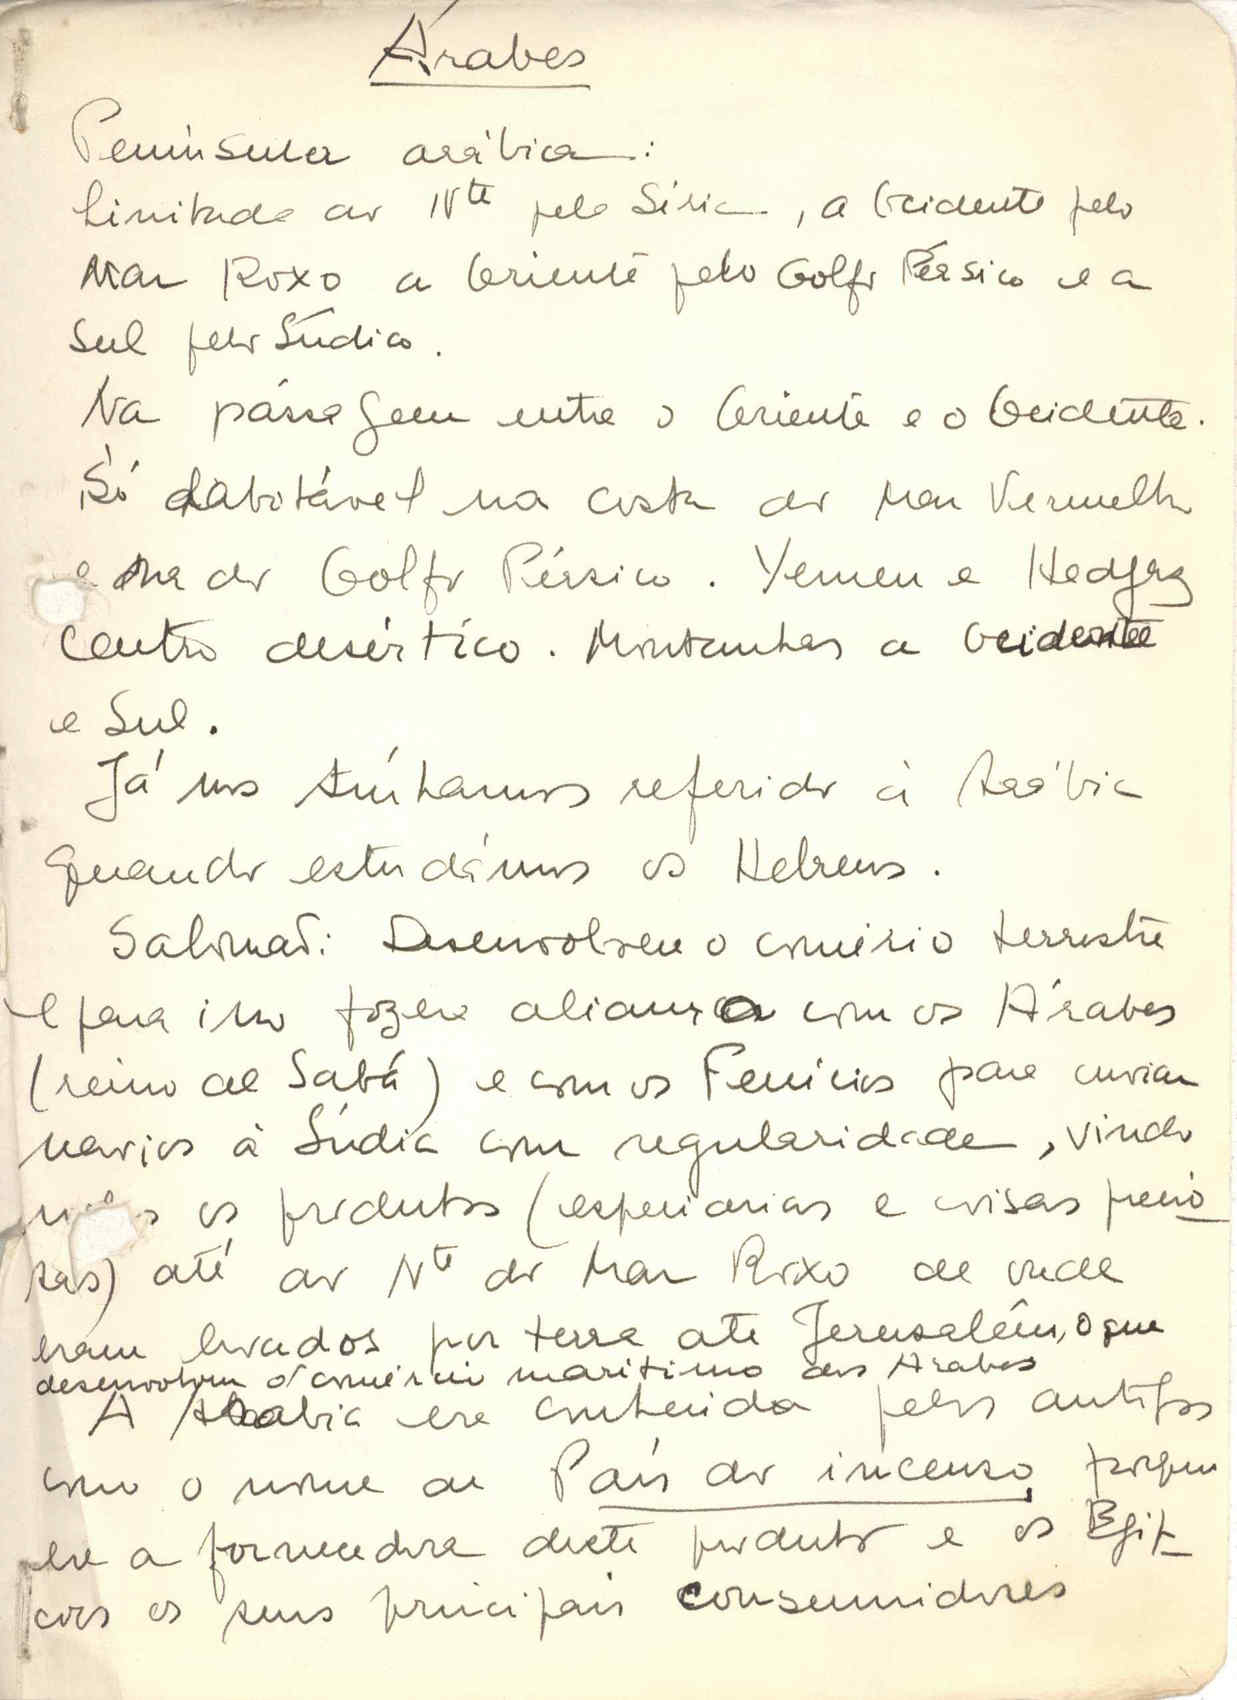 Árabes
Península arábica:
Limitada ao Nte pela Síria, a Ocidente pelo
Mar Roxo a Oriente pelo Golfo Pérsico e a
Sul pelo Índico.
Na passagem entre o Oriente e o Ocidente.
Só habitável na costa do Mar Vermelho
e na do Golfo Pérsico. Yemen e Hedjaz
Centro desértico. Montanhas a Ocidente
e Sul.
Já nos tínhamos referido à Arábia
quando estudámos os Hebreus.
Salomão: Desenvolveu o comércio terrestre
e para isso fizera aliança com os Árabes
(reino de Sabá) e com os Fenícios para enviar
navios à Índia com regularidade, vindo
os produtos (especiarias e coisas precio
sas) até ao Nte do Mar Roxo de onde
eram levados por terra até Jerusalêm, o que
desenvolveu o comércio marítimo dos Arabes
A Arabia era conhecida pelos antigos
como o nome de País do incenso, porque
era a fornecedora deste produto e os Egíp
cios os seus principais consumidores